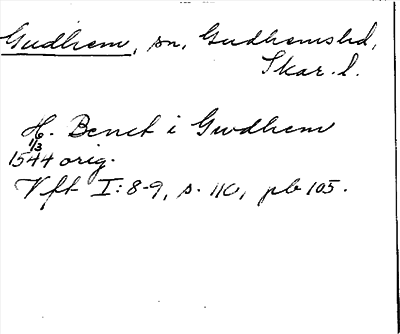 Gudhem, sn, Gudhemshd,
Skar. l.
H. Benct i Gwdhem
1/3
1544 orig.
Vft I:8-9, s. 110, pb 105.